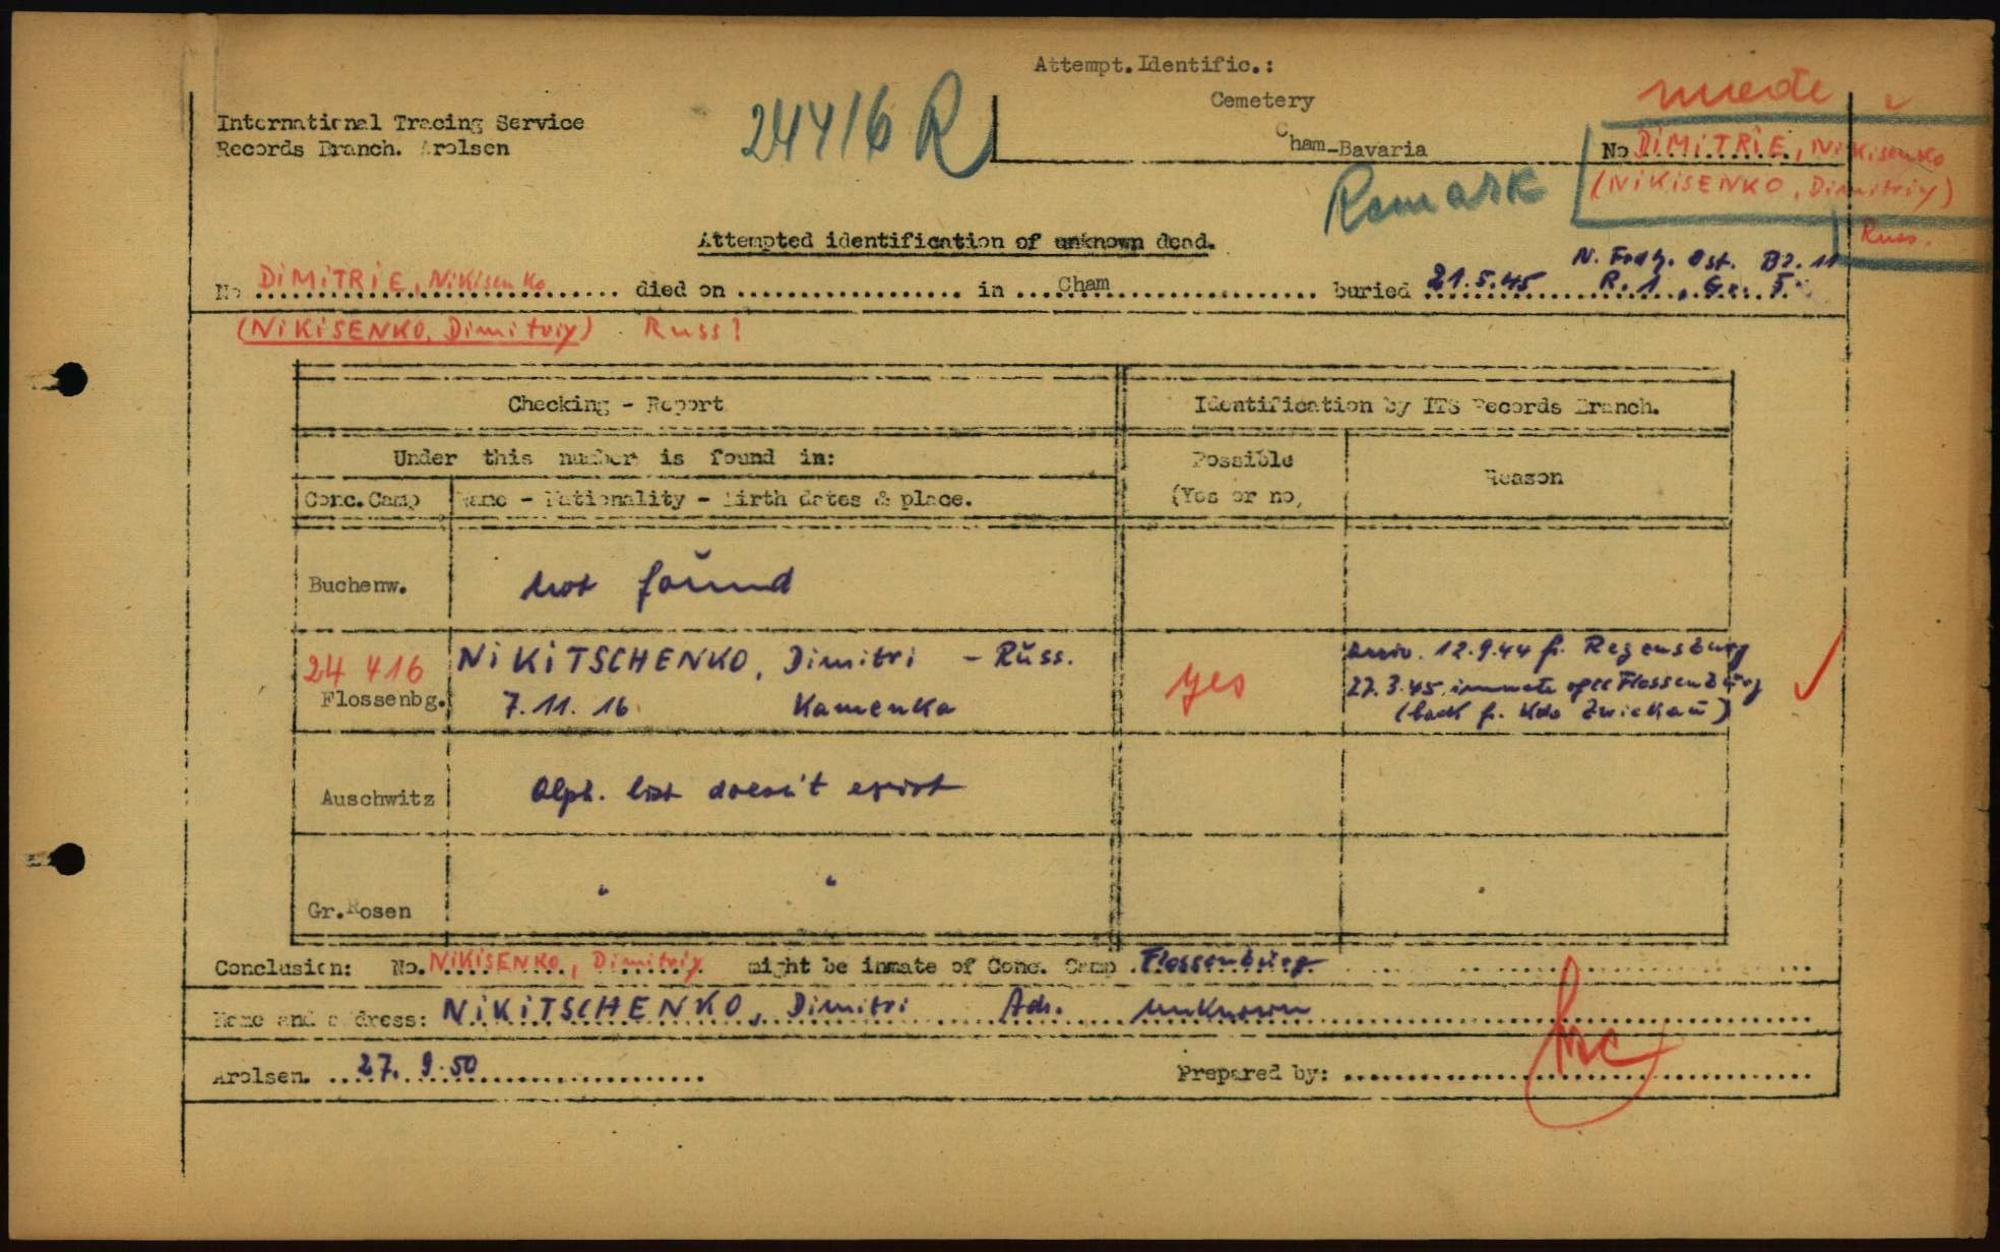 Attempt.Identific.:
Cemetery
Cham-Bavaria
International Tracing Service
Records Branch. Arolsen
24416 R
Remark
No DIMITRIE, Nikisenko
(NIKISENKO, Dimitriy)
Russ.
Attempted identification of unknown dead.
No DIMITRIE, Nikisenko died on .......... in Cham buried 21.5.45 N. Frdh. Ost. Bz. 11
R. 1, Gr. 5
(NIKISENKO, Dimitriy) Russ!
Checking - Report
Identification by ITS Records Branch.
Under this number is found in:
Possible
(Yes or no,
Reason
Conc.Camp
Name - Nationality - Birth dates & place.
Buchenw.
not found
24 416
Flossenbg.
NIKITSCHENKO, Dimitri - Russ.
7.11.16 Kamenka
yes
arriv. 12.9.44 fr. Regensburg
27.3.45 inmate of CC Flossenbürg
(back fr. Kdo Zwickau)
Auschwitz
Alph. list doesn't exist
Gr.Rosen
" "
Conclusion: No. NIKISENKO, Dimitriy might be inmate of Conc. Camp Flossenbürg
Name and address: NIKITSCHENKO, Dimitri Adr. unknown
Arolsen. 27. 9.50
Prepared by: